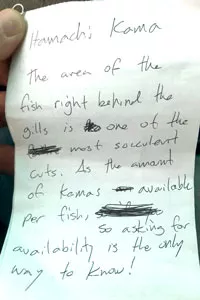 Hamachi Kama
The area of the
fish right behind the
gills is one of the
most socculent
cuts. As the amount
of Kamas available
per fish,
so asking for
availability is the only
way to know!